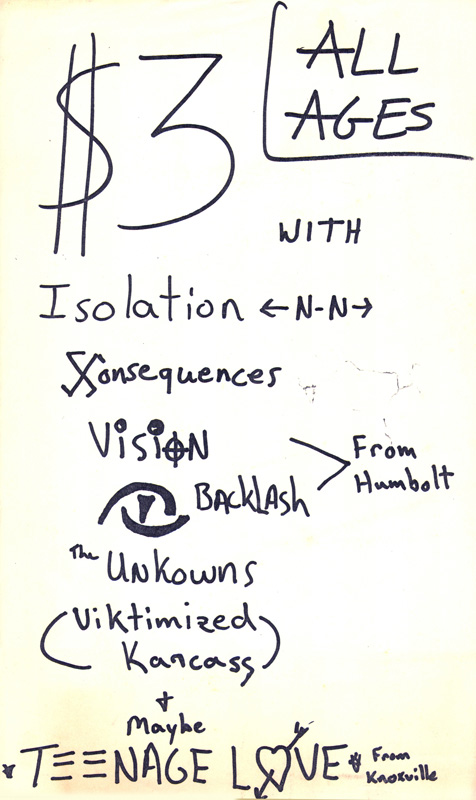 $3
ALL
AGES
WITH
Isolation ←N-N→
Xonsequences
ViSiON
BACKLASH
From
Humbolt
The UNKOWNS
(Viktimized
Karcass)
+
Maybe
TEENAGE LOVE
From
Knoxville